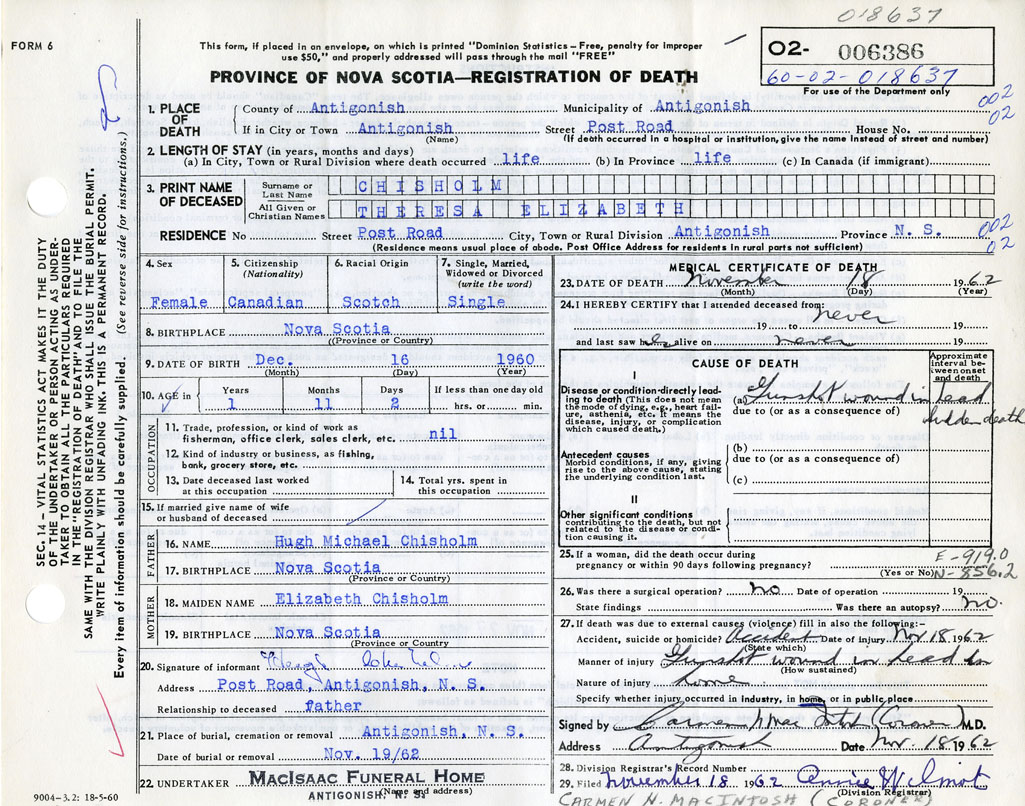 018637
FORM 6
This form, if placed in an envelope, on which is printed "Dominion Statistics – Free, penalty for improper
use $50," and properly addressed will pass through the mail "FREE"
O2- 006386
60-02-018637
For use of the Department only
PROVINCE OF NOVA SCOTIA—REGISTRATION OF DEATH
002
02
1. PLACE OF DEATH
County of Antigonish Municipality of Antigonish
If in City or Town Antigonish Street Post Road House No.
(Name) (If death occurred in a hospital or institution, give the name instead of street and number)
2. LENGTH OF STAY (in years, months and days)
(a) In City, Town or Rural Division where death occurred life (b) In Province life (c) In Canada (if immigrant)
3. PRINT NAME OF DECEASED
Surname or Last Name CHISHOLM
All Given or Christian Names THERESA ELIZABETH
RESIDENCE No Street Post Road City, Town or Rural Division Antigonish Province N. S.
(Residence means usual place of abode. Post Office Address for residents in rural parts not sufficient)
002
02
SEC. 14 – VITAL STATISTICS ACT MAKES IT THE DUTY
OF THE UNDERTAKER OR PERSON ACTING AS UNDER-
TAKER TO OBTAIN ALL THE PARTICULARS REQUIRED
IN THE "REGISTRATION OF DEATH" AND TO FILE THE
SAME WITH THE DIVISION REGISTRAR WHO SHALL ISSUE THE BURIAL PERMIT.
WRITE PLAINLY WITH UNFADING INK. THIS IS A PERMANENT RECORD.
Every item of information should be carefully supplied. (See reverse side for instructions.)
4. Sex
Female
5. Citizenship
(Nationality)
Canadian
6. Racial Origin
Scotch
7. Single, Married,
Widowed or Divorced
(write the word)
Single
8. BIRTHPLACE Nova Scotia
((Province or Country)
9. DATE OF BIRTH Dec. 16 1960
(Month) (Day) (Year)
10. AGE in
Years Months Days If less than one day old
1 11 2 hrs. or min.
OCCUPATION
11. Trade, profession, or kind of work as
fisherman, office clerk, sales clerk, etc. nil
12. Kind of industry or business, as fishing,
bank, grocery store, etc
13. Date deceased last worked
at this occupation
14. Total yrs. spent in
this occupation
15. If married give name of wife
or husband of deceased
FATHER
16. NAME Hugh Michael Chisholm
17. BIRTHPLACE Nova Scotia
(Province or Country)
MOTHER
18. MAIDEN NAME Elizabeth Chisholm
19. BIRTHPLACE Nova Scotia
(Province or Country)
20. Signature of informant
Address Post Road, Antigonish, N. S.
Relationship to deceased father
21. Place of burial, cremation or removal Antigonish, N. S.
Date of burial or removal Nov. 19/62
22. UNDERTAKER MacIsaac Funeral Home
(Name and address)
ANTIGONISH. N. S.
9004-3.2: 18-5-60
MEDICAL CERTIFICATE OF DEATH
23. DATE OF DEATH November 18 1962
(Month) (Day) (Year)
24. I HEREBY CERTIFY that I attended deceased from:
19 to never 19
and last saw her alive on never 19
CAUSE OF DEATH
Approximate
interval be-
tween onset
and death
I
Disease or condition directly lead-
ing to death (This does not mean
the mode of dying, e.g., heart fail-
ure, asthenia, etc. It means the
disease, injury, or complication
which caused death.)
(a) Gunshot wound in head
due to (or as a consequence of)
sudden death
Antecedent causes
Morbid conditions, if any, giving
rise to the above cause, stating
the underlying condition last.
(b)
due to (or as a consequence of)
(c)
II
Other significant conditions
contributing to the death, but not
related to the disease or condi-
tion causing it.
25. If a woman, did the death occur during
pregnancy or within 90 days following pregnancy?
(Yes or No)
E-919.0
N-856.2
26. Was there a surgical operation? no Date of operation 19
State findings Was there an autopsy? no.
27. If death was due to external causes (violence) fill in also the following:–
Accident, suicide or homicide? Accident Date of injury Nov 18 1962
(State which)
Manner of injury Gunshot wound in head in
(How sustained)
Nature of injury home
Specify whether injury occurred in industry, in home, or in public place
Signed by (Coroner) M.D.
Address Antigonish Date Nov. 18 1962
28. Division Registrar's Record Number
29. Filed November 18 1962 Annie Wilmot
(Division Registrar)
CARMEN N. MACINTOSH (CORONER)